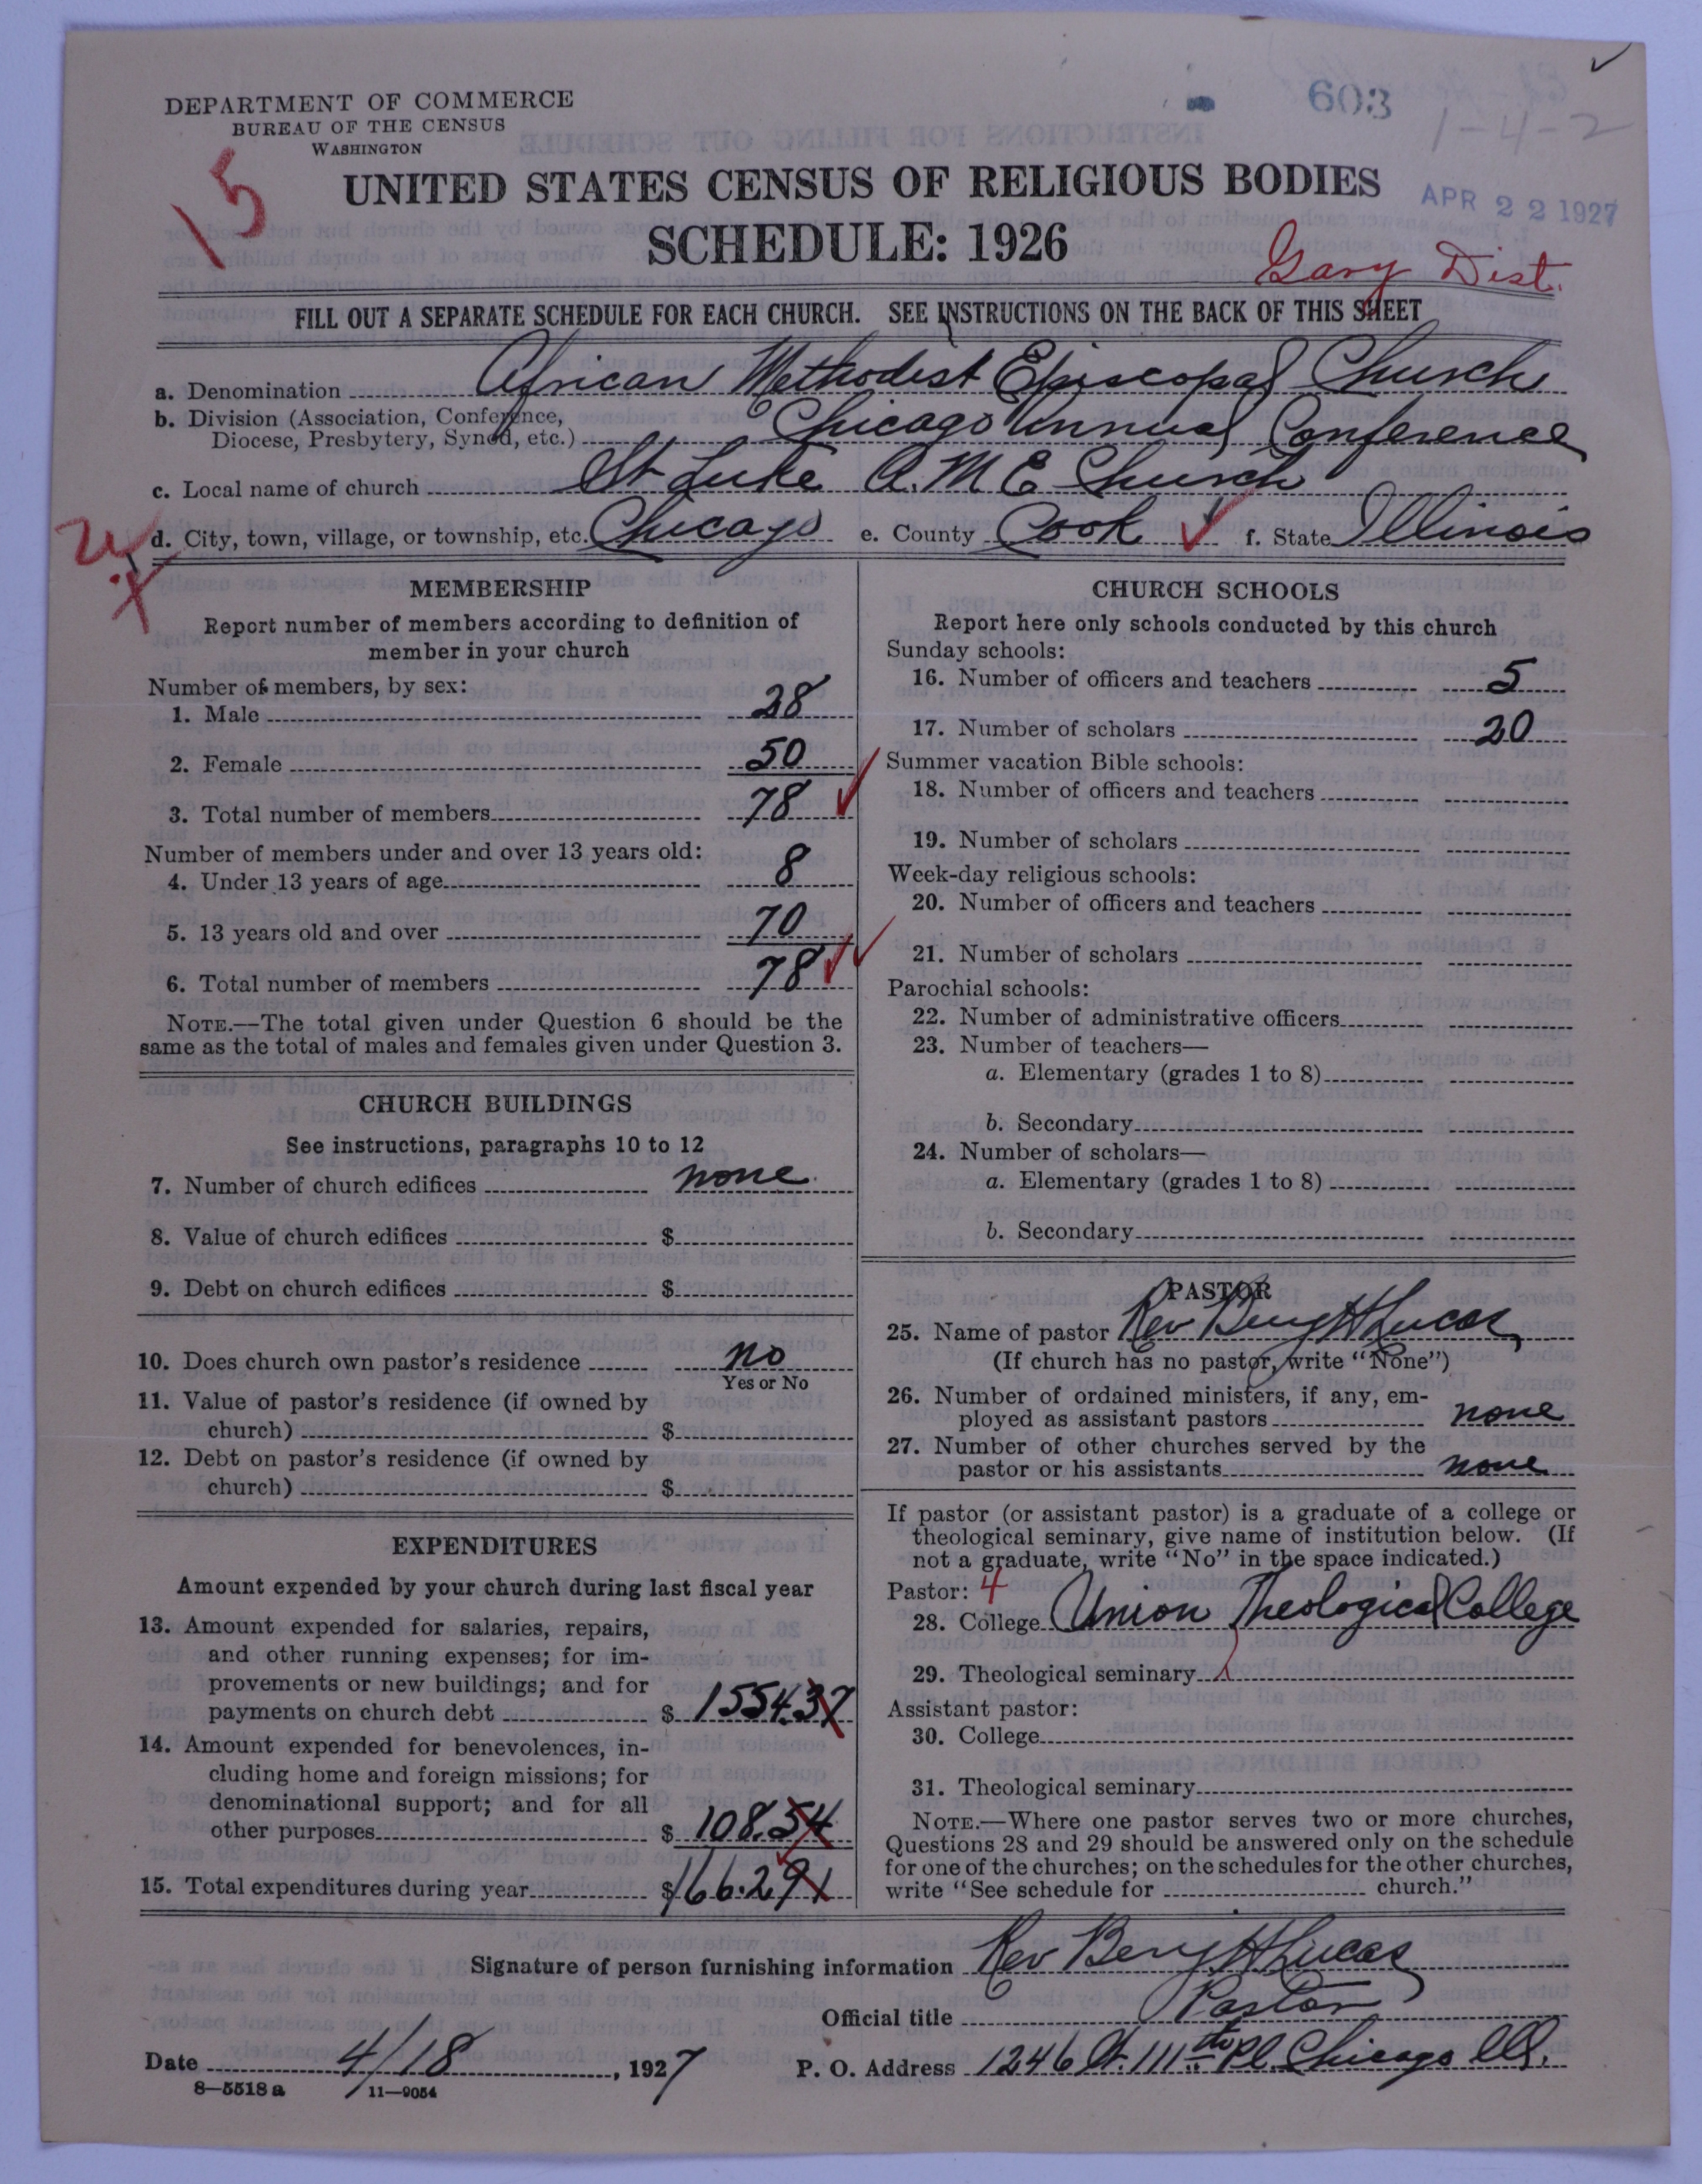 603
1-4-2
DEPARTMENT OF COMMERCE
BUREAU OF THE CENSUS
WASHINGTON
15
UNITED STATES CENSUS OF RELIGIOUS BODIES
APR 22 1927
SCHEDULE: 1926
Gary Dist.
FILL OUT A SEPARATE SCHEDULE FOR EACH CHURCH. SEE INSTRUCTIONS ON THE BACK OF THIS SHEET
a. Denomination African Methodist Episcopal Church
b. Division (Association, Conference,
Diocese, Presbytery, Synod, etc.) Chicago Annual Conference
c. Local name of church St Luke A.M E Church
d. City, town, village, or township, etc. Chicago e. County Cook f. State Illinois
MEMBERSHIP
Report number of members according to definition of
member in your church
Number of members, by sex:
1. Male 28
2. Female 50
3. Total number of members 78
Number of members under and over 13 years old:
4. Under 13 years of age 8
5. 13 years old and over 70
6. Total number of members 78
NOTE.—The total given under Question 6 should be the
same as the total of males and females given under Question 3.
CHURCH BUILDINGS
See instructions, paragraphs 10 to 12
7. Number of church edifices none
8. Value of church edifices $
9. Debt on church edifices $
10. Does church own pastor's residence no
Yes or No
11. Value of pastor's residence (if owned by
church) $
12. Debt on pastor's residence (if owned by
church) $
EXPENDITURES
Amount expended by your church during last fiscal year
13. Amount expended for salaries, repairs,
and other running expenses; for im-
provements or new buildings; and for
payments on church debt $ 1554.37
14. Amount expended for benevolences, in-
cluding home and foreign missions; for
denominational support; and for all
other purposes $ 108.54
15. Total expenditures during year $ 166.291
CHURCH SCHOOLS
Report here only schools conducted by this church
Sunday schools:
16. Number of officers and teachers 5
17. Number of scholars 20
Summer vacation Bible schools:
18. Number of officers and teachers
19. Number of scholars
Week-day religious schools:
20. Number of officers and teachers
21. Number of scholars
Parochial schools:
22. Number of administrative officers
23. Number of teachers—
a. Elementary (grades 1 to 8)
b. Secondary
24. Number of scholars—
a. Elementary (grades 1 to 8)
b. Secondary
PASTOR
25. Name of pastor Rev Benj H Lucas
(If church has no pastor, write "None")
26. Number of ordained ministers, if any, em-
ployed as assistant pastors none
27. Number of other churches served by the
pastor or his assistants none
If pastor (or assistant pastor) is a graduate of a college or
theological seminary, give name of institution below. (If
not a graduate, write "No" in the space indicated.)
Pastor: 4
28. College Union Theological College
29. Theological seminary
Assistant pastor:
30. College
31. Theological seminary
NOTE.—Where one pastor serves two or more churches,
Questions 28 and 29 should be answered only on the schedule
for one of the churches; on the schedules for the other churches,
write "See schedule for church."
Signature of person furnishing information Rev Benj H Lucas
Official title Pastor
Date 4/18, 1927 P. O. Address 1246 W. 111th Pl Chicago Ill.
8—5518 a 11—9054